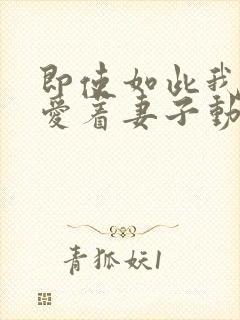 即使如此我
爱着妻子動
青狐妖1